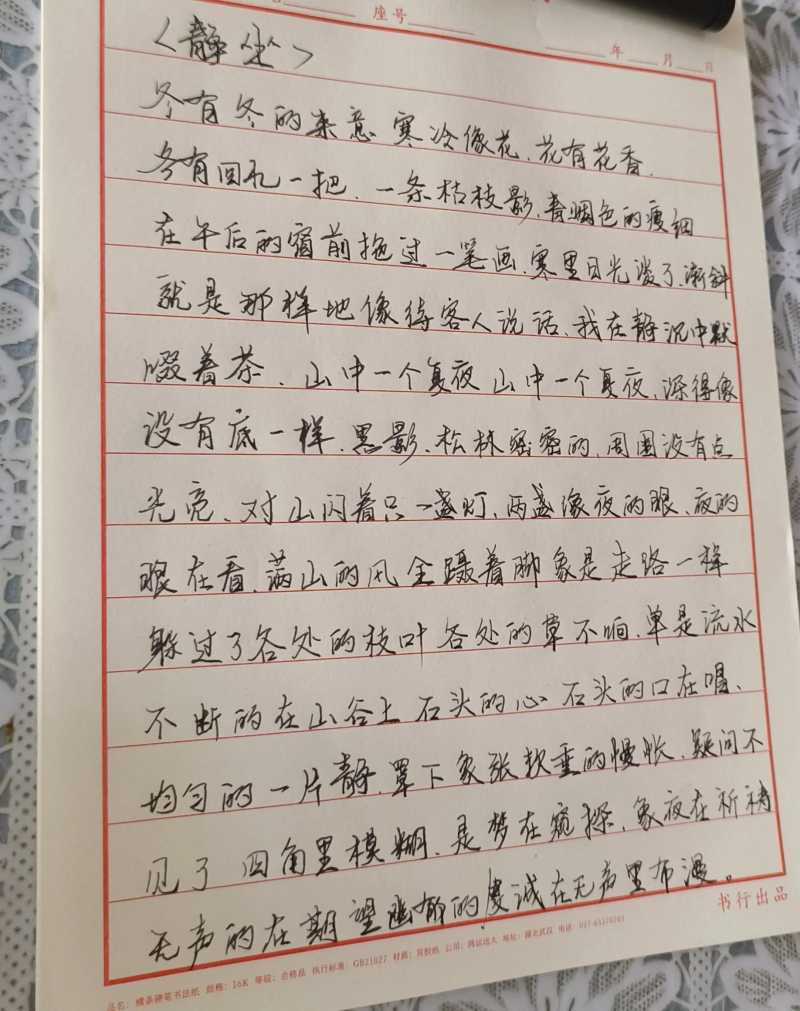 座号
年 月 日
<静坐>
冬有冬的来意 寒冷像花、花有花香、
冬有回忆一把、一条枯枝影、青烟色的瘦细
在午后的窗前拖过一笔画、寒里日光淡了、渐斜
就是那样地像待客人说话、我在静沉中默
啜着茶、山中一个夏夜 山中一个夏夜、深得像
没有底一样、黑影、松林密密的、周围没有点
光亮、对山闪着只一盏灯、两盏像夜的眼、夜的
眼在看、满山的风全蹑着脚象是走路一样
躲过了各处的枝叶 各处的草不响、单是流水
不断的在山谷上 石头的心 石头的口在唱、
均匀的一片静、罩下象张软垂的慢帐、疑问不
见了 四角里模糊、是梦在窥探、象夜在祈祷
无声的在期望幽郁的虔诚在无声里布漫。
书行出品
品名：横条硬笔书法纸 规格：16K 等级：合格品 执行标准：GB21027 地址：湖北武汉 电话：